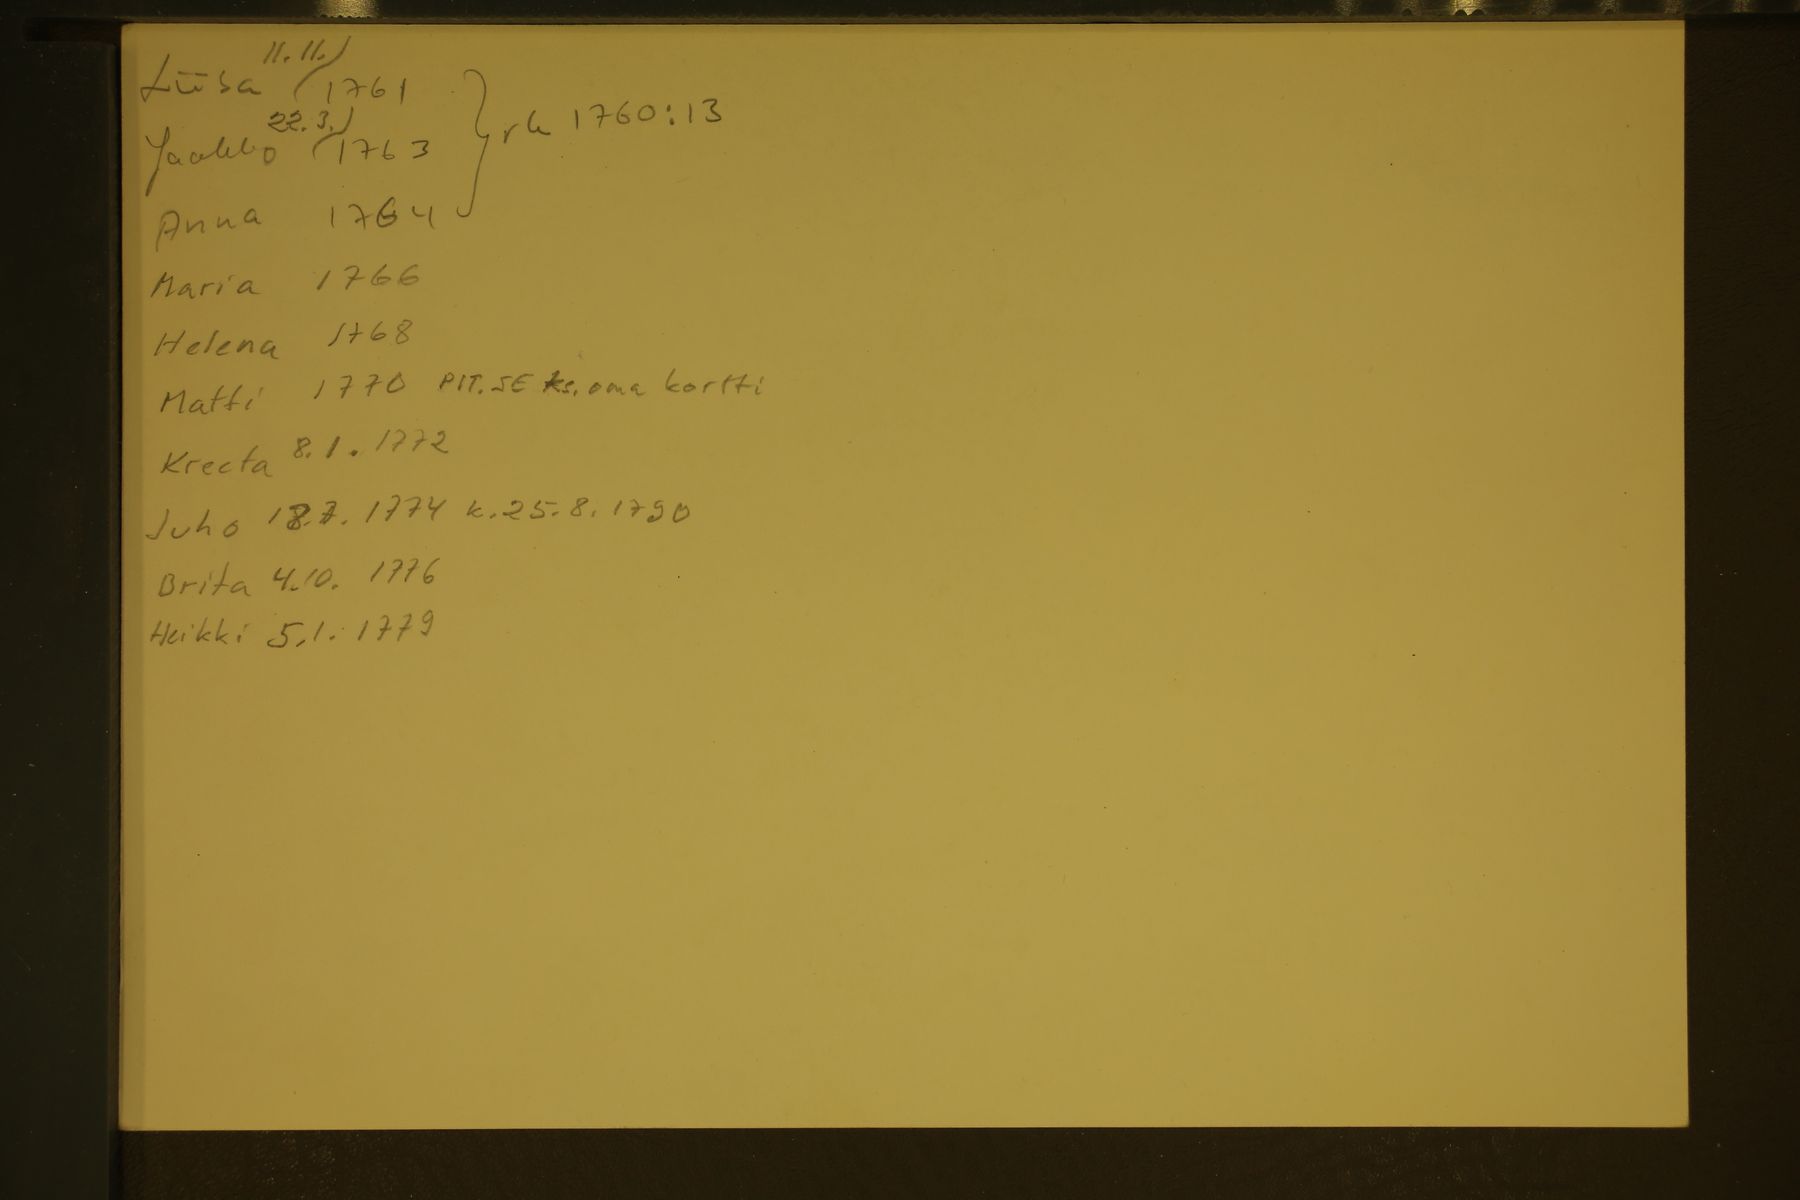 Liisa 11.11. 1761
Jaakko 22.3. 1763 rk 1760:13
Anna 1764
Maria 1766
Helena 1768
Matti 1770 PIT.SE ks. oma kortti
Kreeta 8.1. 1772
Juho 18.7. 1774 k. 25.8. 1790
Brita 4.10. 1776
Heikki 5.1. 1779